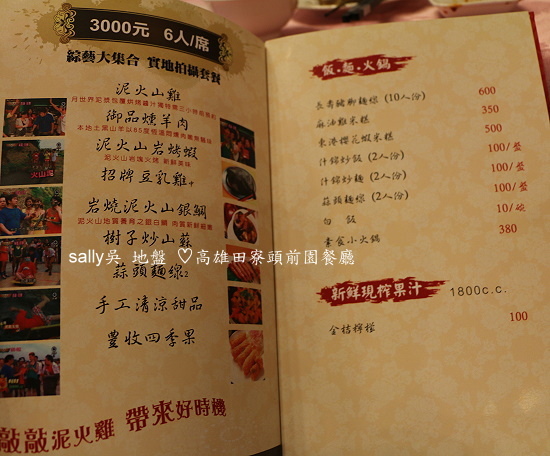 3000元 6人/席
綜藝大集合 實地拍攝套餐
泥火山雞
御品燻羊肉
本地土黑山羊以85度低溫悶燻
泥火山岩烤蝦
泥火山岩塊火烤 新鮮美味
招牌豆乳雞中
岩燒泥火山銀鯛
樹子炒山蘇
蒜頭麵線2
手工清涼甜品
豐收四季果
敲敲泥火雞 帶來好時機
sally吳 地盤 ♡高雄田寮頭前園餐廳
飯.麵.火鍋
長壽豬腳麵線 (10人份) 600
麻油雞米糕 350
東港櫻花蝦米糕 500
什錦炒飯 (2人份) 100/盤
什錦炒麵 (2人份) 100/盤
蒜頭麵線 (2人份) 100/盤
白飯 10/碗
素食小火鍋 380
新鮮現榨果汁 1800c.c.
金桔檸檬 100